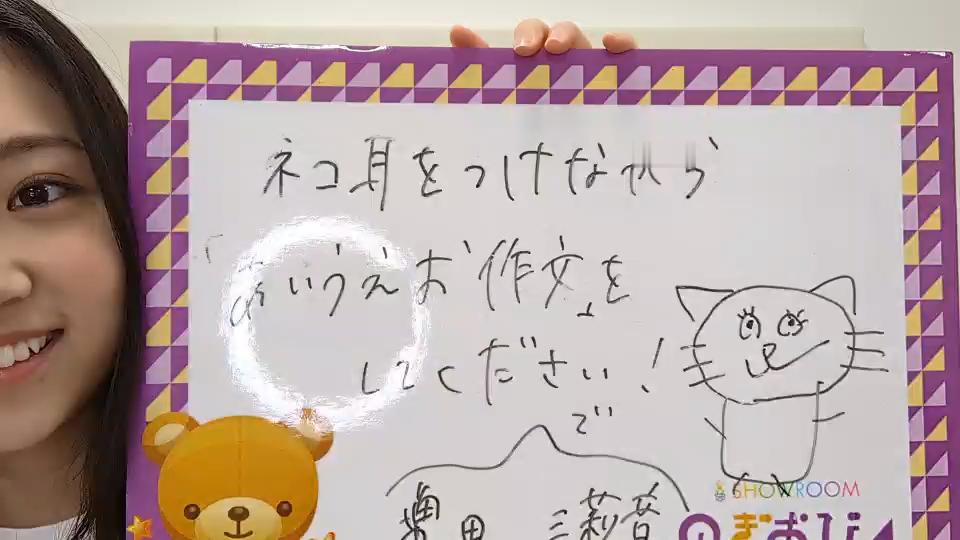 ネコ耳をつけながら
「あいうえお作文」を
してください!
で
増田 三莉音
SHOWROOM
ぎおび